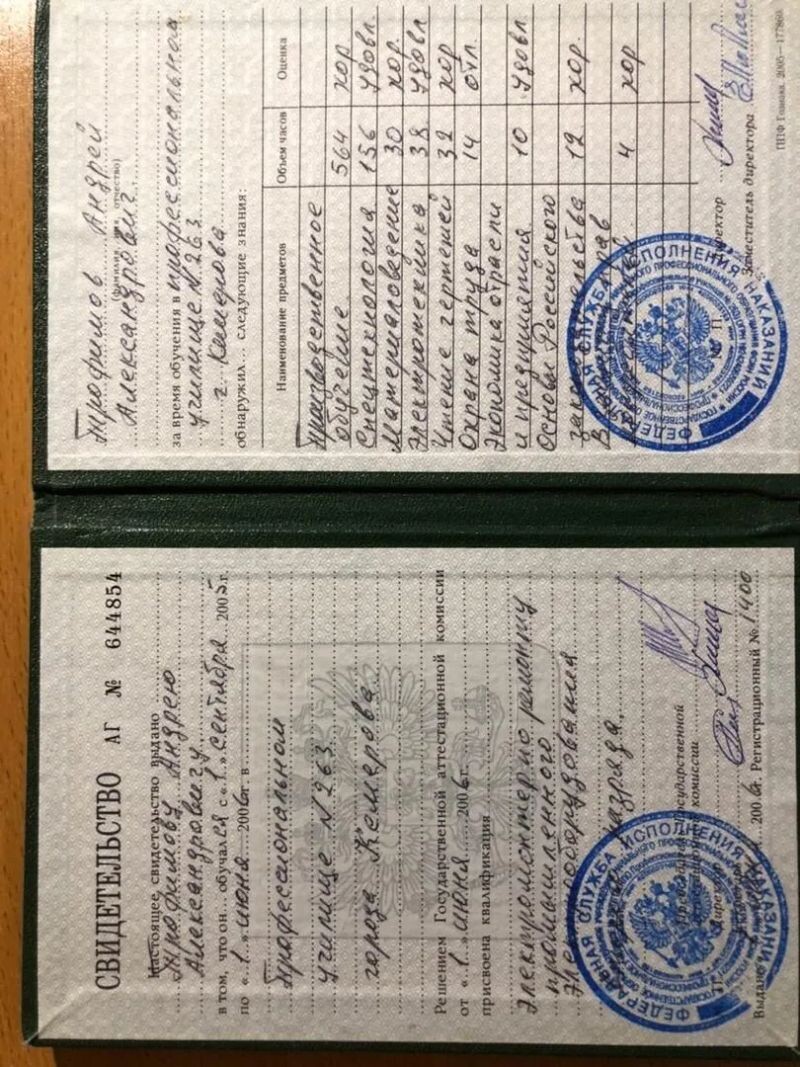 СВИДЕТЕЛЬСТВО АГ № 644854
Настоящее свидетельство выдано
Трофимову Андрею
Александровичу
в том, что он... обучался с «1» сентября 2005 г.
по «1» июня 2006 г. в
Профессиональном
училище N 263
города Кемерова
Решением Государственной аттестационной комиссии
от «1» июня 2006 г.
присвоена квалификация
Электромонтер по ремонту
промышленного
электрооборудования
разряда.
Председатель Государственной
аттестационной комиссии
Директор
Выдано 2006 г. Регистрационный № 1400
ФЕДЕРАЛЬНАЯ СЛУЖБА ИСПОЛНЕНИЯ НАКАЗАНИЙ
Трофимов Андрей
(фамилия, имя, отчество)
Александрович
за время обучения в профессиональном
училище N 263
г. Кемерова
обнаружил... следующие знания:
Наименование предметов Объем часов Оценка
Производственное
обучение 564 хор
Спецтехнология 156 удовл
Материаловедение 30 хор.
Электротехника 38 удовл
Чтение чертежей 32 хор
Охрана труда 14 отл.
Экономика отрасли
и предприятия 10 удовл.
Основы Российского
законодательства 12 хор.
4 хор
Директор
М. П.
Заместитель директора
ФЕДЕРАЛЬНАЯ СЛУЖБА ИСПОЛНЕНИЯ НАКАЗАНИЙ
ППФ Гознака. 2005—177860.